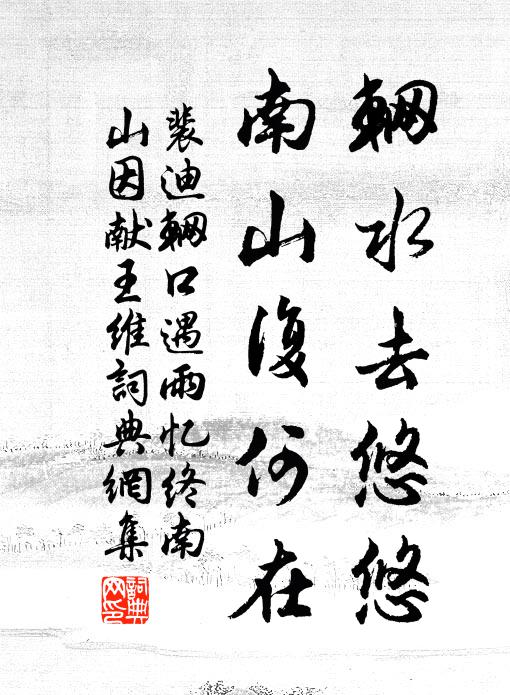 輞水去悠悠
南山復何在
裴迪輞口遇雨忆终南
山因献王維詞典網集
詞典网印